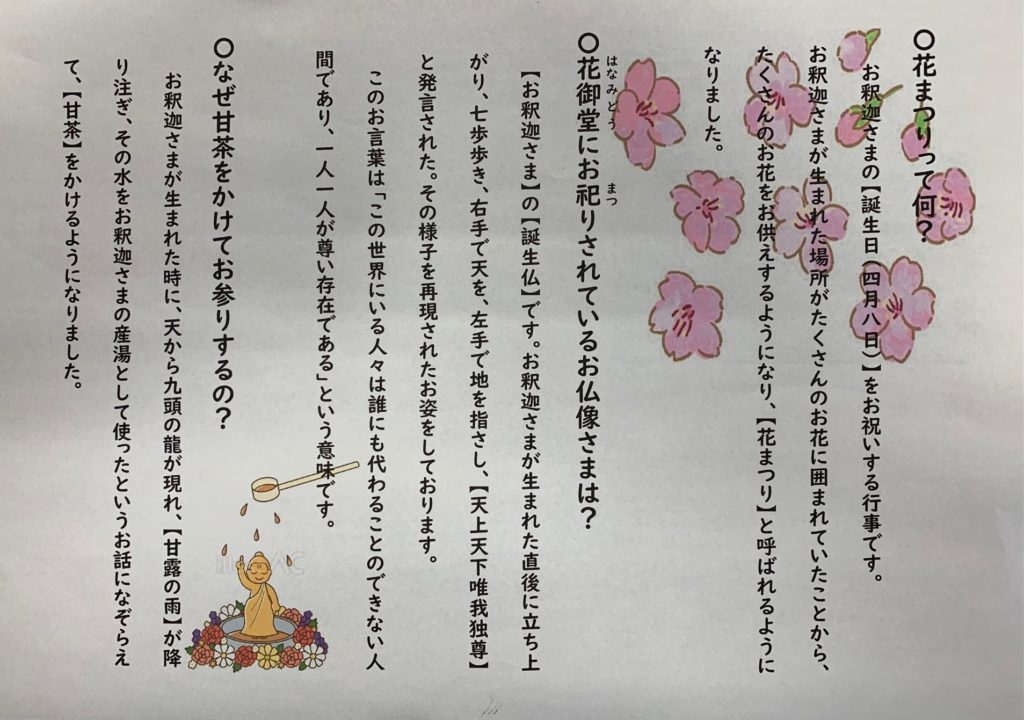 〇花まつりって何？
お釈迦さまの【誕生日（四月八日）】をお祝いする行事です。
お釈迦さまが生まれた場所がたくさんのお花に囲まれていたことから、
たくさんのお花をお供えするようになり、【花まつり】と呼ばれるように
なりました。
〇花御堂にお祀りされているお仏像さまは？
はなみどう
まつ
【お釈迦さま】の【誕生仏】です。お釈迦さまが生まれた直後に立ち上
がり、七歩歩き、右手で天を、左手で地を指さし、【天上天下唯我独尊】
と発言された。その様子を再現されたお姿をしております。
このお言葉は「この世界にいる人々は誰にも代わることのできない人
間であり、一人一人が尊い存在である」という意味です。
〇なぜ甘茶をかけてお参りするの？
お釈迦さまが生まれた時に、天から九頭の龍が現れ、【甘露の雨】が降
り注ぎ、その水をお釈迦さまの産湯として使ったというお話になぞらえ
て、【甘茶】をかけるようになりました。